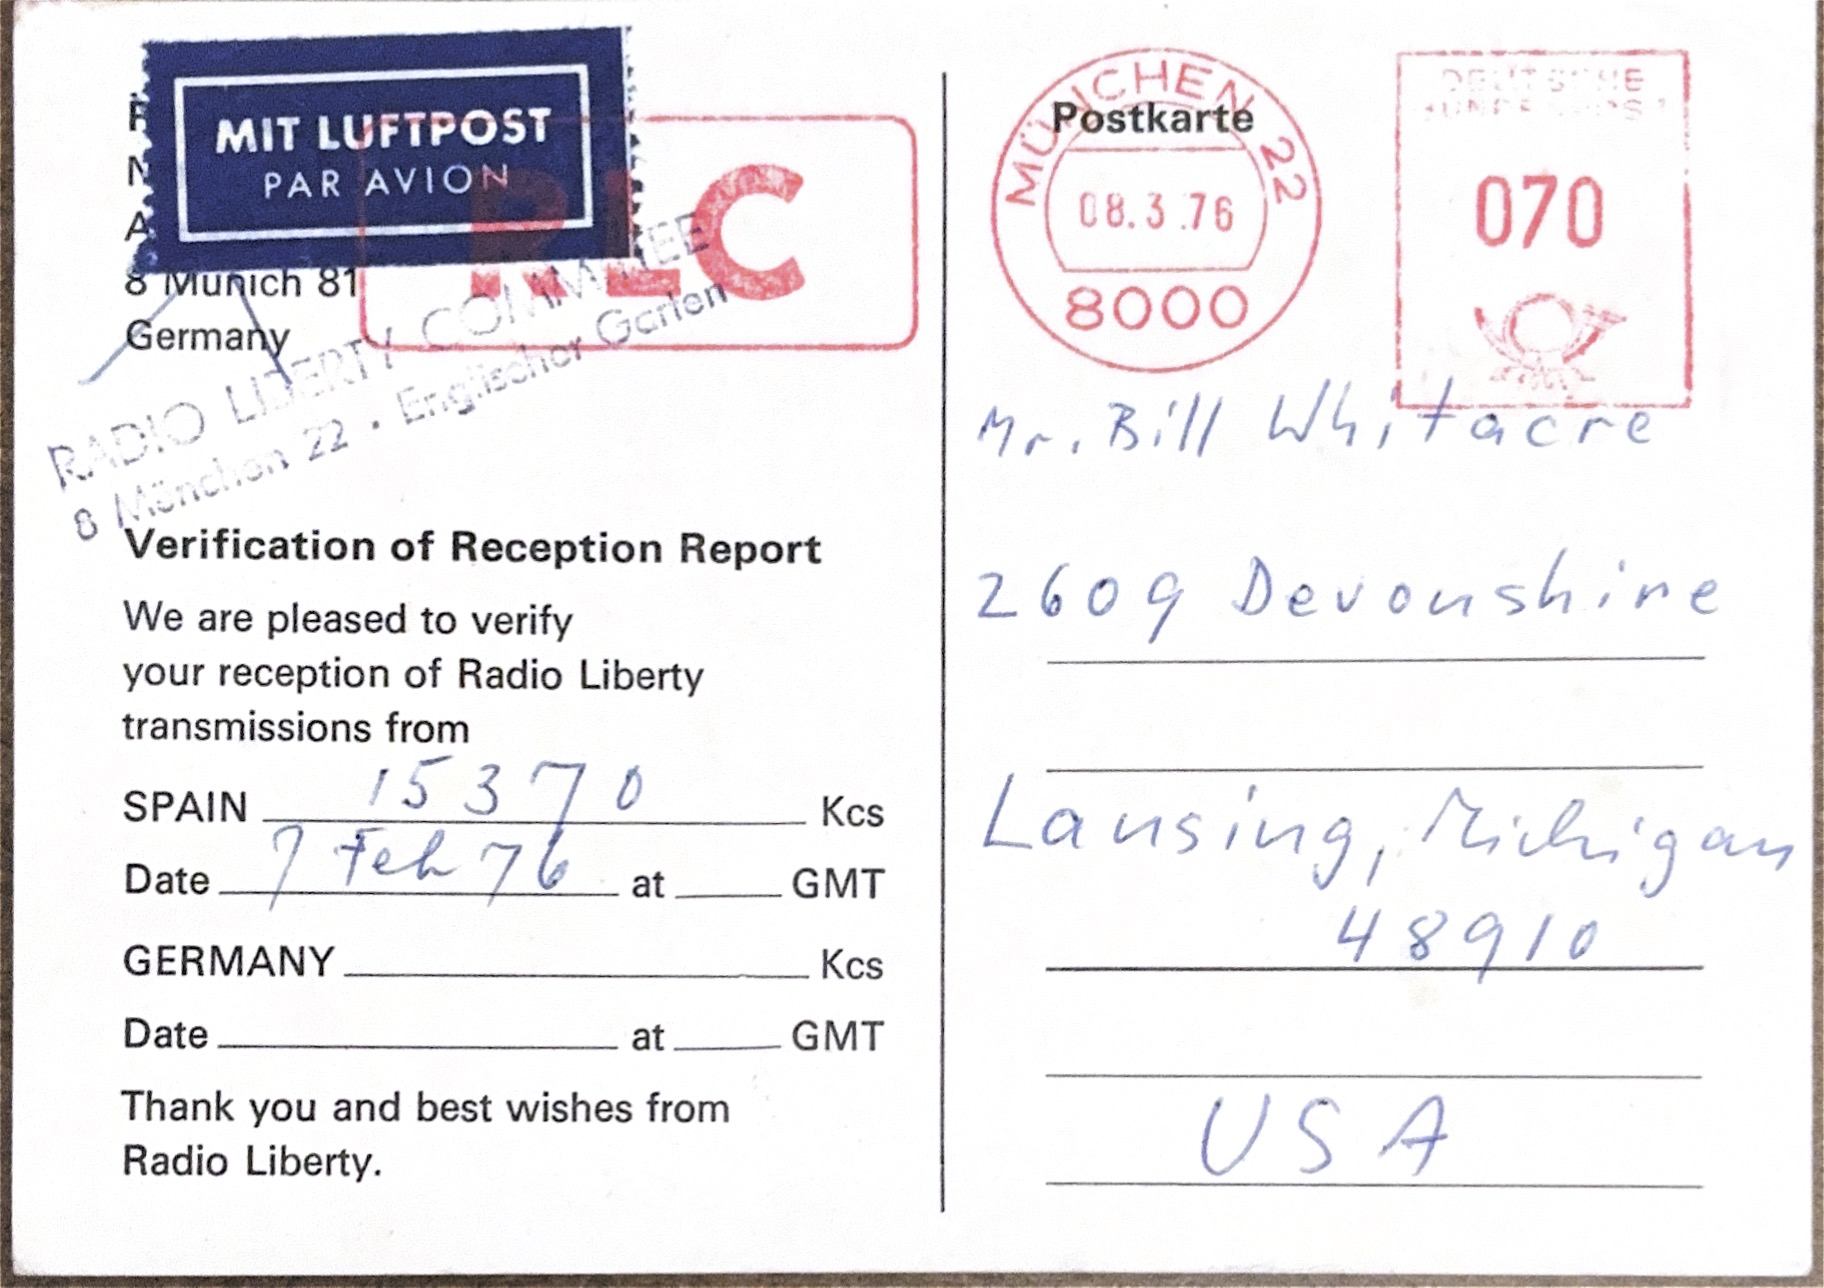 MIT LUFTPOST
PAR AVION
RLC
8 Munich 81
Germany
RADIO LIBERTY COMMITTEE
8 München 22 · Englischer Garten
Verification of Reception Report
We are pleased to verify
your reception of Radio Liberty
transmissions from
SPAIN 15370 Kcs
Date 7 Feb 76 at GMT
GERMANY Kcs
Date at GMT
Thank you and best wishes from
Radio Liberty.
Postkarte
MÜNCHEN 22
08.3.76
8000
DEUTSCHE
BUNDESPOST
070
Mr. Bill Whitacre
2609 Devonshire
Lansing, Michigan
48910
USA